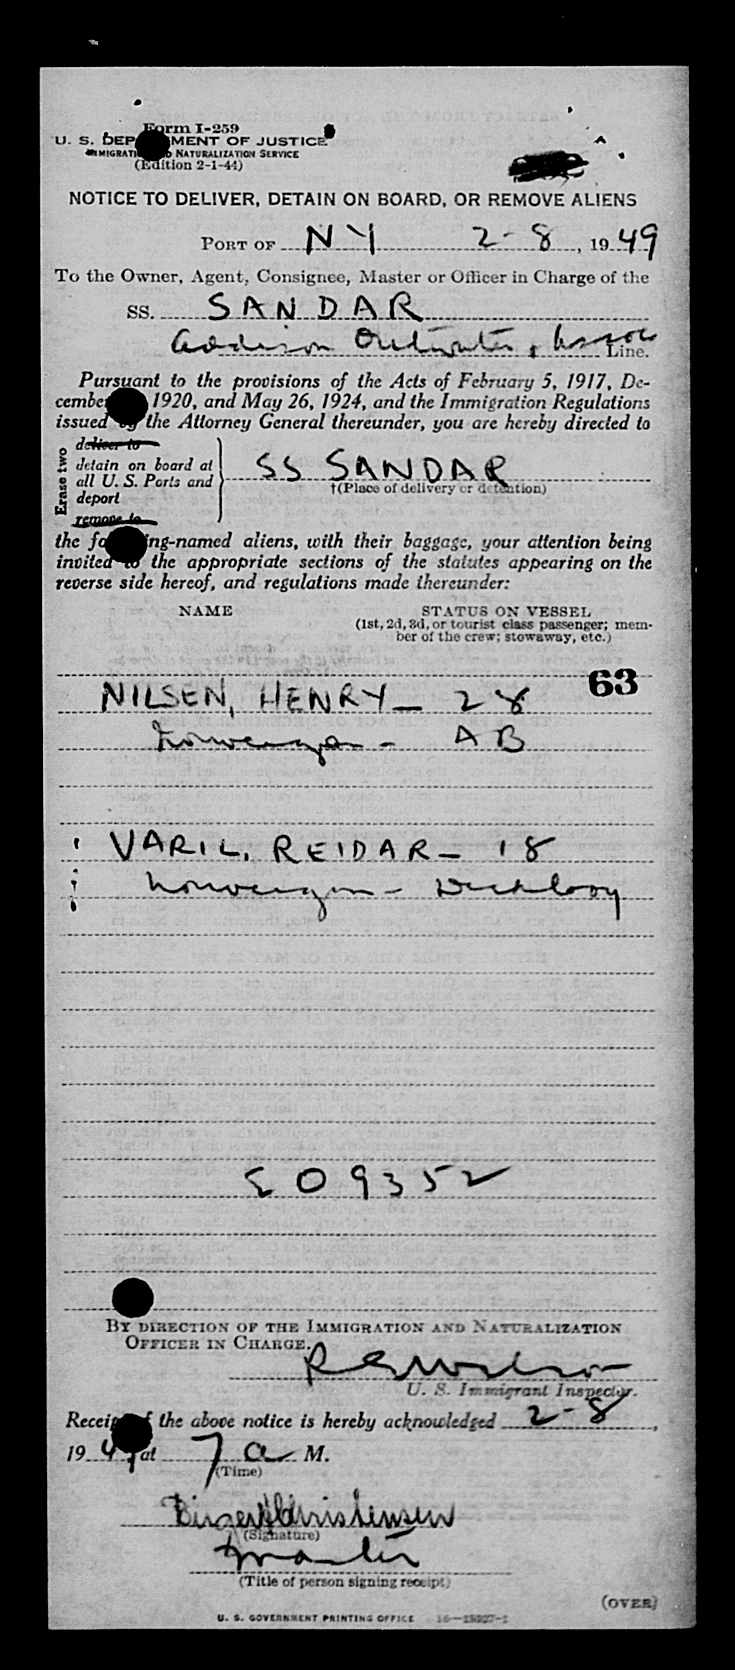 Form I-259
U. S. DEPARTMENT OF JUSTICE
IMMIGRATION AND NATURALIZATION SERVICE
(Edition 2-1-44)
NOTICE TO DELIVER, DETAIN ON BOARD, OR REMOVE ALIENS
PORT OF NY 2-8, 1949
To the Owner, Agent, Consignee, Master or Officer in Charge of the
SS. SANDAR
Addison Outwater & Assoc Line.
Pursuant to the provisions of the Acts of February 5, 1917, De-
cember 1920, and May 26, 1924, and the Immigration Regulations
issued by the Attorney General thereunder, you are hereby directed to
Erase two
deliver to
detain on board at
all U. S. Ports and
deport
remove to
SS SANDAR
†(Place of delivery or detention)
the following-named aliens, with their baggage, your attention being
invited to the appropriate sections of the statutes appearing on the
reverse side hereof, and regulations made thereunder:
NAME STATUS ON VESSEL
(1st, 2d, 3d, or tourist class passenger; mem-
ber of the crew; stowaway, etc.)
63
NILSEN, HENRY - 28
Norwegian - AB
VARIL, REIDAR - 18
Norwegian - Deckboy
E09352
BY DIRECTION OF THE IMMIGRATION AND NATURALIZATION
OFFICER IN CHARGE.
U. S. Immigrant Inspector.
Receipt of the above notice is hereby acknowledged 2-8,
1949 at 7 a M.
(Time)
Birger Christensen
(Signature)
Master
(Title of person signing receipt)
(OVER)
U. S. GOVERNMENT PRINTING OFFICE